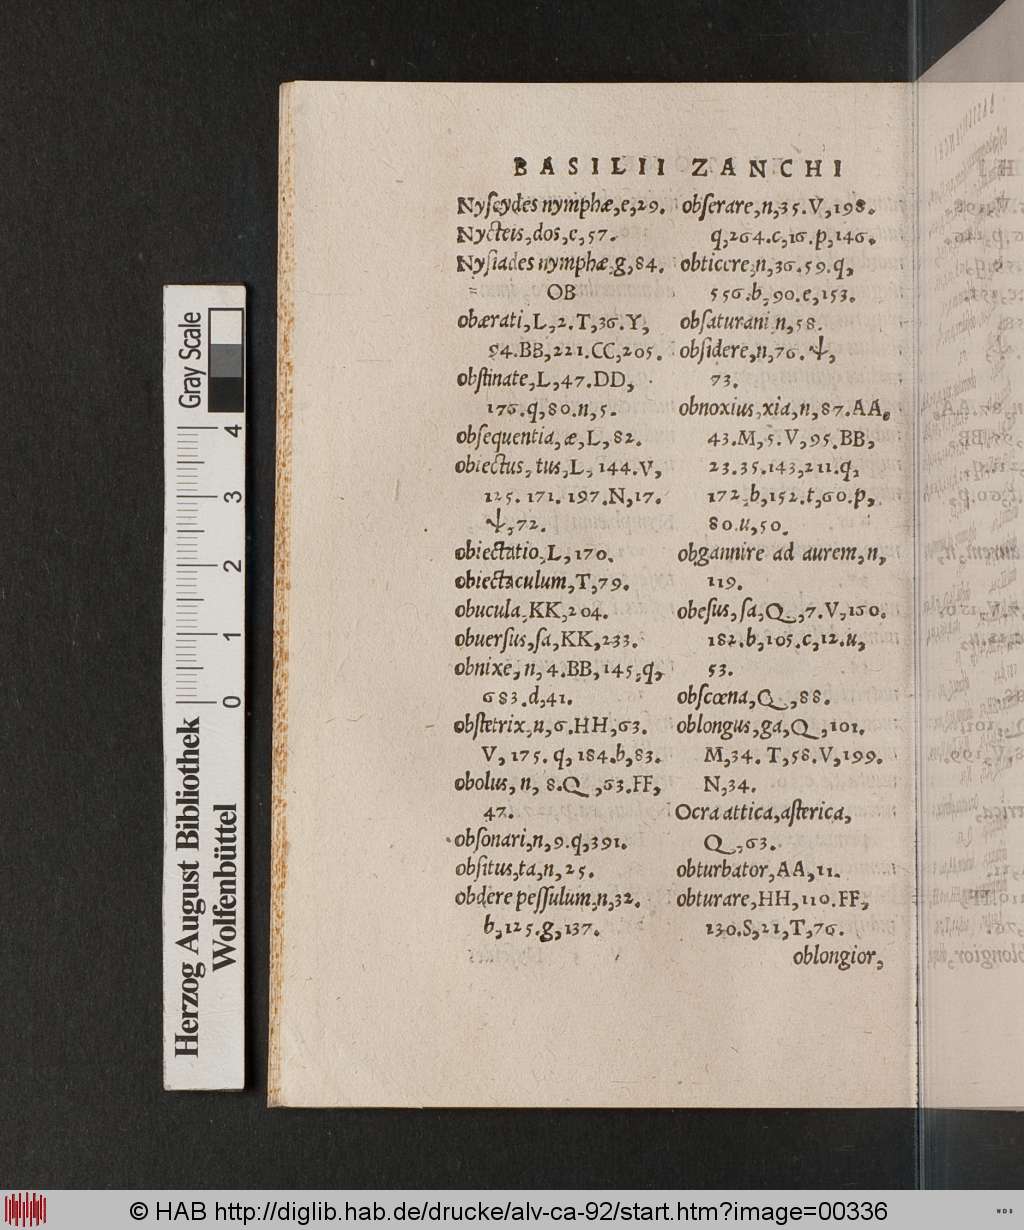 BASILII ZANCHI
Nyſeydes nymphæ,e,29.
Nycteis,dos,e,57.
Nyſiades nymphæ,g,84.
OB
obærati,L,2.T,36.Y,
94.BB,221.CC,205.
obſtinate,L,47.DD,
176.q,80.n,5.
obſequentia,æ,L,82.
obiectus,tus,L,144.V,
125.171.197.N,17.
Ψ,72.
obiectatio,L,170.
obiectaculum,T,79.
obucula,KK,204.
obuerſus,ſa,KK,233.
obnixe,n,4.BB,145,q,
683.d,41.
obſtetrix,n,6.HH,63.
V,175.q,184.b,83.
obolus,n,8.Q,63.FF,
47.
obſonari,n,9.q,391.
obſitus,ta,n,25.
obdere peſſulum,n,32.
b,125.g,137.
obſerare,n,35.V,198.
q,264.c,16.p,146.
obticere,n,36.59.q,
556.b,90.e,153.
obſaturani n,58.
obſidere,n,76.Ψ,
73.
obnoxius,xia,n,87.AA,
43.M,5.V,95.BB,
23.35.143,211.q,
172,b,152.t,60.p,
80.u,50.
obgannire ad aurem,n,
119.
obeſus,ſa,Q,7.V,160.
182.b,105.c,12.u,
53.
obſcœna,Q,88.
oblongus,ga,Q,101.
M,34.T,58.V,199.
N,34.
Ocra attica,aſterica,
Q,63.
obturbator,AA,11.
obturare,HH,110.FF,
130.S,21,T,76.
oblongior,
Gray Scale
4
3
2
1
0
Herzog August Bibliothek
Wolfenbüttel
© HAB http://diglib.hab.de/drucke/alv-ca-92/start.htm?image=00336